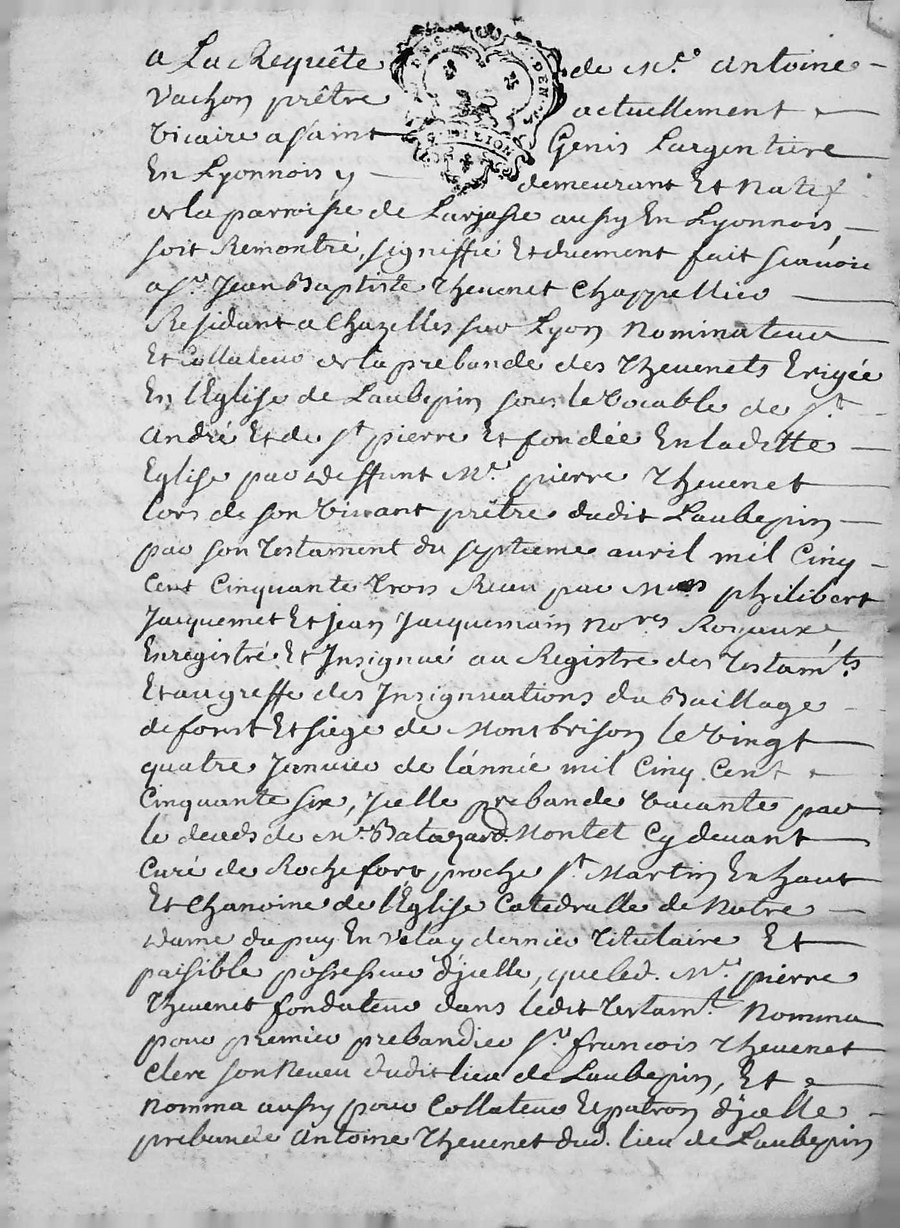 a La Requête de Mre Antoine
Vachon prêtre actuellement
Vicaire a saint Genis Largentiere
En Lyonnois y demeurant Et natif
de la parroisse de Larjasse aussy En Lyonnois,
soit Remontré, signiffié Et duement fait scavoir
a sr Jean Baptiste Thevenet Chappellier
Residant a Chazelles sur Lyon Nominateur
Et Collateur de la prebande des Thevenets Erigée
En l'Eglise de Laubepin sous le Vocable de st
André Et de st pierre Et fondée En laditte
Eglise par deffunt Mre pierre Thevenet
lors de son Vivant prêtre dudit Laubepin
par son Testament du septieme avril mil Cinq
Cent Cinquante Trois Receu par philibert
Jacquemet Et jean Jacquemain Nores Royaux,
Enregistré Et Insignué au Registre des Testamts
Et au greffe des Insignuations du Baillage
de forest Et siege de Montbrison le Vingt
quatre Janvier de l'année mil Cinq Cent
Cinquante six, Jcelle prebande Vacante par
le deceds de Mre Batazard Montet Cy devant
Curé de Rochefort proche st Martin En haut
Et Chanoine de l'Eglise Catedralle de Notre
dame du puy En Velay dernier Titulaire Et
paisible possesseur d'jcelle, que led. Mre pierre
Thevenet fondateur dans ledit Testamt Nomma
pour premier prebandier sr francois Thevenet
Clerc son Neveu dudit lieu de Laubepin, Et
nomma aussy pour Collateur Et patron d'jcelle
prebande Antoine Thevenet dud. lieu de Laubepin